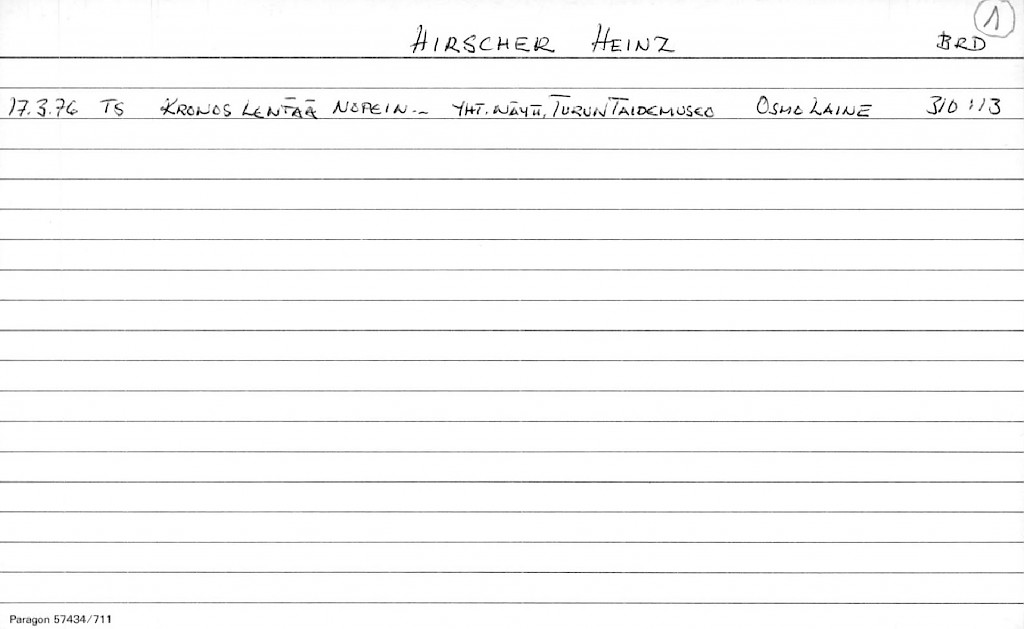 1
HIRSCHER HEINZ BRD
17.3.76 TS KRONOS LENTÄÄ NOPEIN.. YHT. NÄYTT, TURUN TAIDEMUSEO OSMO LAINE 310:113
Paragon 57434/711